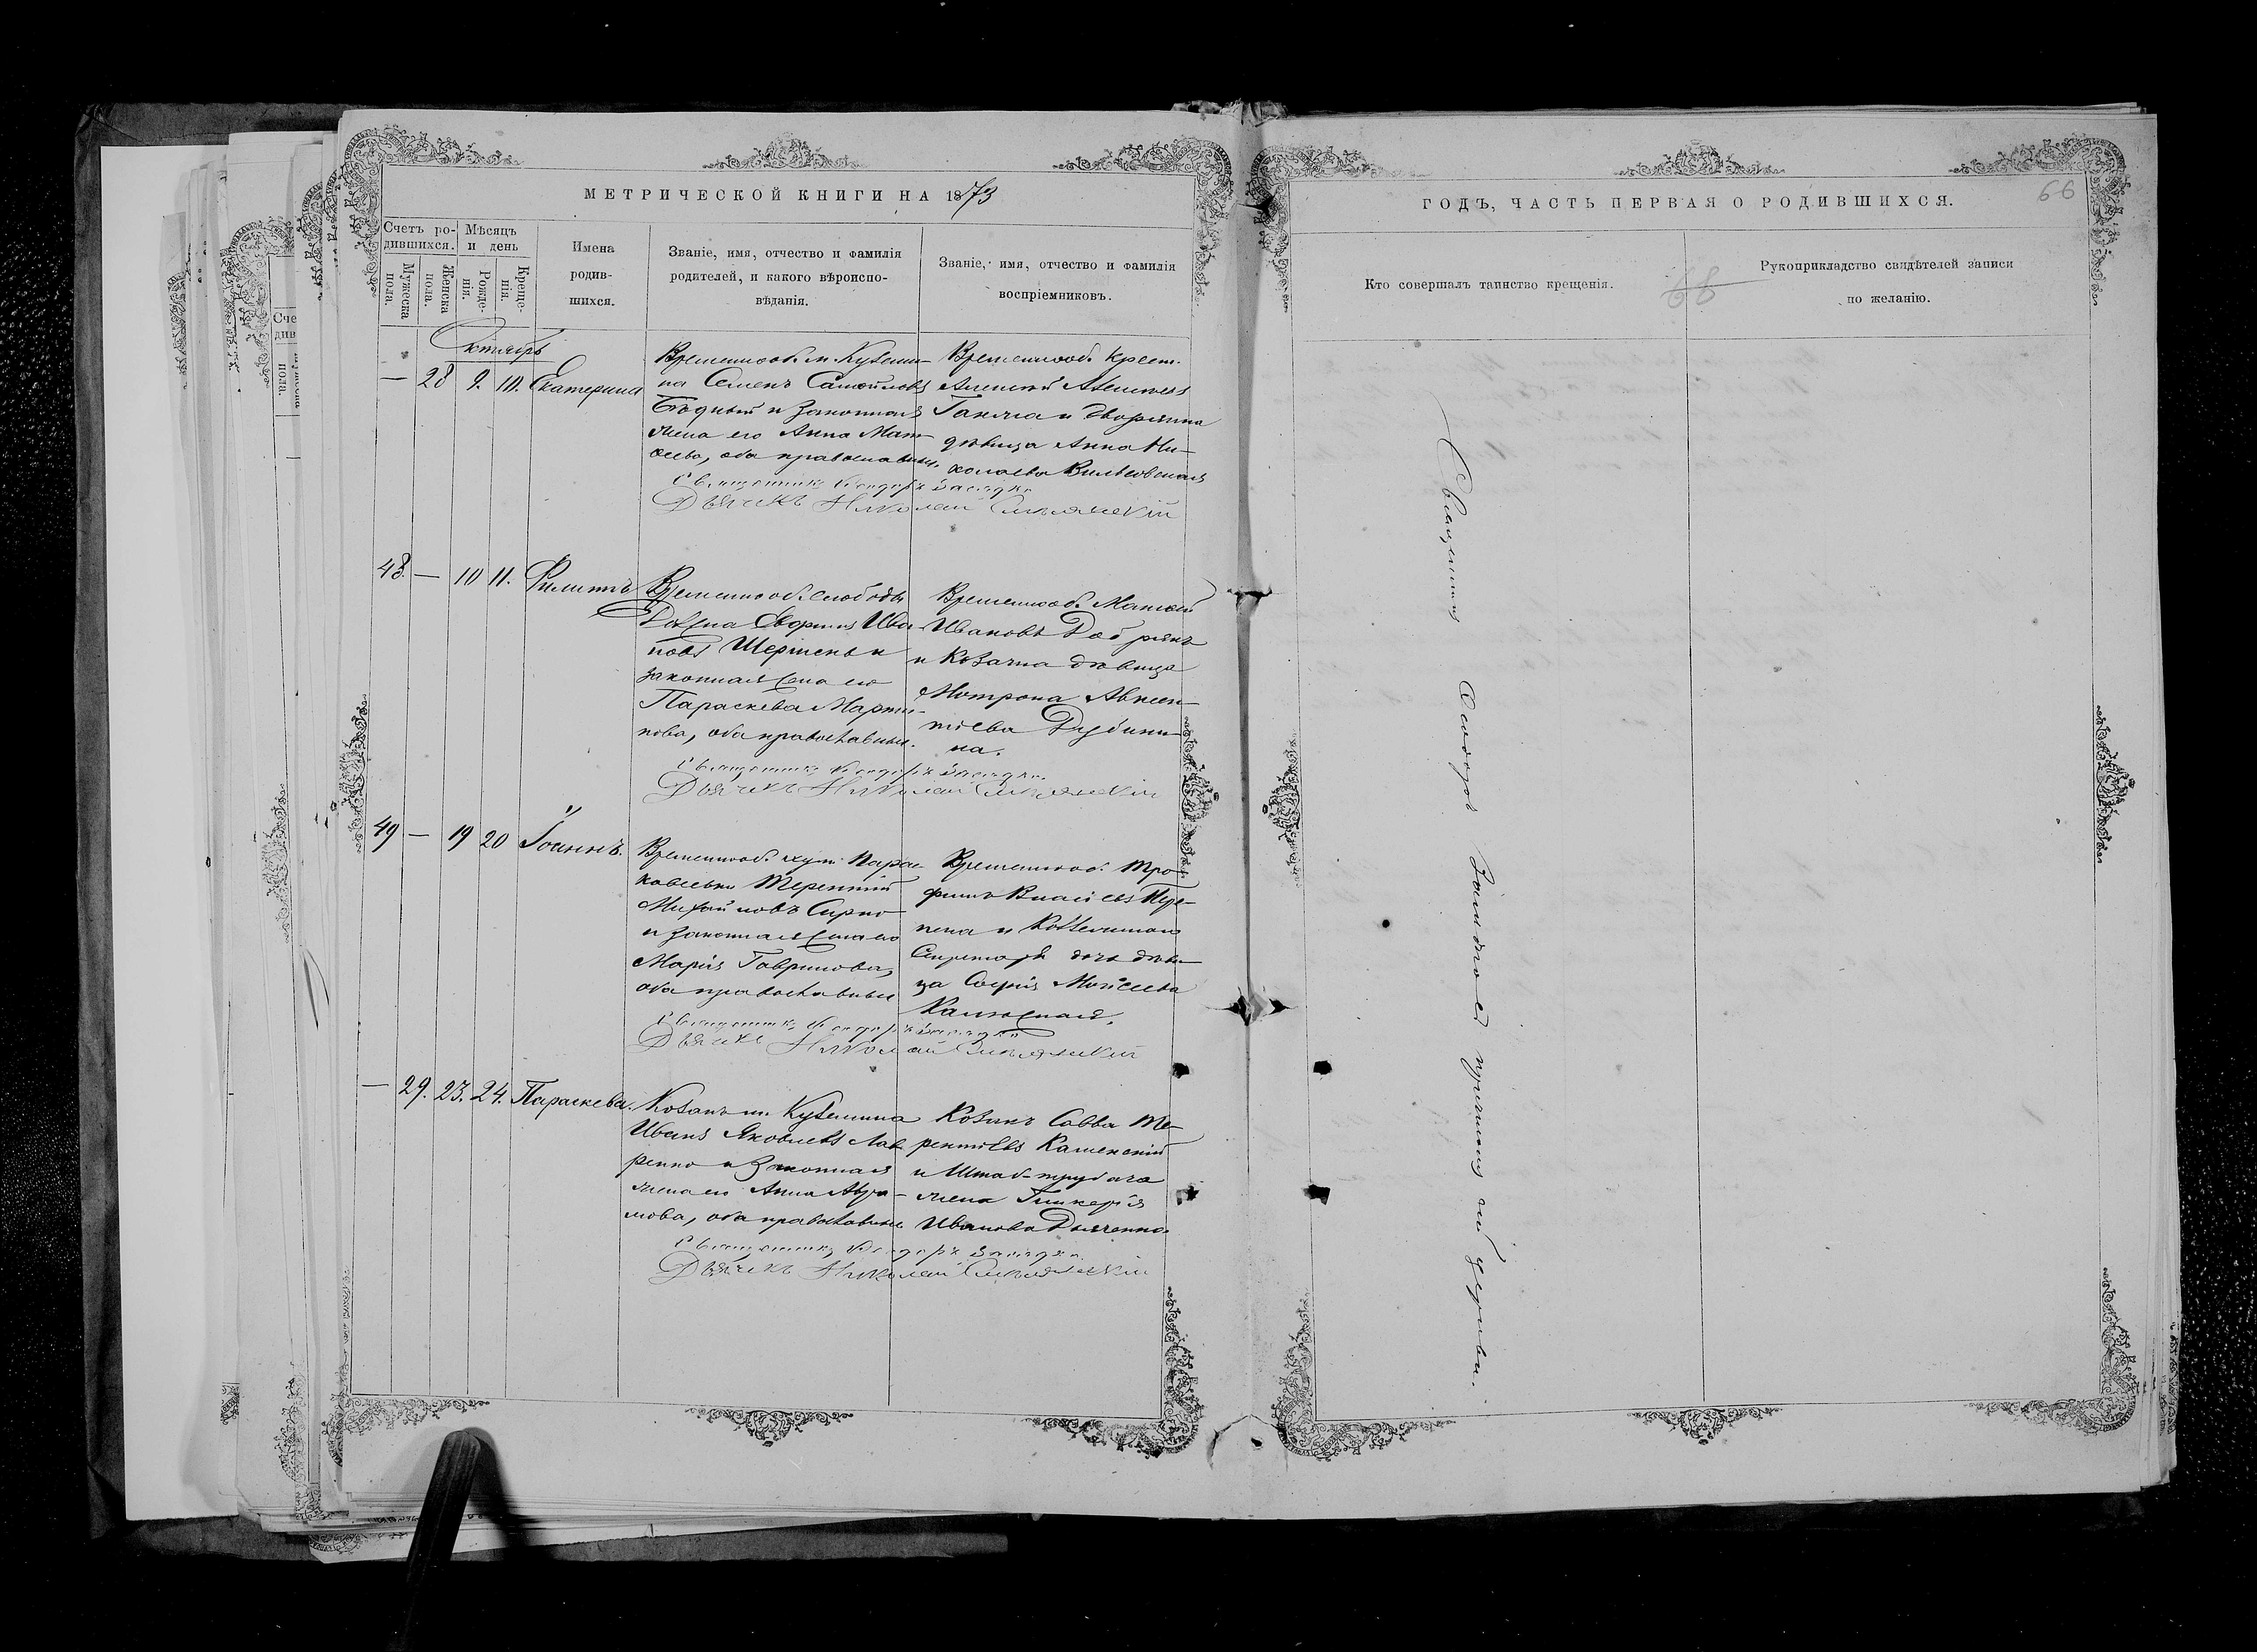 МЕТРИЧЕСКОЙ КНИГИ НА 1873
Счетъ ро-
дившихся.
Мужеска
пола.
Женска
пола.
Мѣсяцъ
и день
Рожде-
нія.
Креще-
нія.
Имена
родив-
шихся.
Званіе, имя, отчество и фамилія
родителей, и какого вѣроиспо-
вѣданія.
Званіе, имя, отчество и фамилія
воспріемниковъ.
Октябрь
— 28 9. 10. Екатерина
Временнооб. м. Куземи-
на Семенъ Самойловъ
Бѣдный и законная
жена его Анна Мат-
ѳеева, оба православные.
Временнооб. крест.
Алексѣй Алексѣевъ
и дворянка
дѣвица Анна Ни-
колаева
Священникъ Ѳеодоръ
Дьячекъ Николай
48. — 10 11. Филиппъ
Временнооб. слободы
Ива-
новъ Шершень и
законная жена его
Параскева Марти-
нова, оба православные.
Временнооб.
Ивановъ
и Козачка дѣвица
Мотрона Авксен-
тіева Дубини-
на.
Священникъ Ѳеодоръ
Дьячекъ Николай
49 — 19 20 Іоаннъ.
Временнооб. хут. Парас-
ковеевки Терентій
Михайловъ Сирко
и законная жена его
Марія Гаврилова,
оба православные
Временнооб. Тро-
фимъ Власіевъ
и
Секретаря дочь дѣви-
ца Софія Моисеева
Священникъ Ѳеодоръ
Дьячекъ Николай
— 29. 23. 24. Параскева.
Козакъ м. Куземина
Иванъ Яковлевъ Лав-
ренко и законная
жена его Анна Авра-
мова, оба православные
Козакъ Савва Те-
рентіевъ Каменскій
и Штаб-трубача
жена Гликерія
Иванова Дьяченко
Священникъ Ѳеодоръ
Дьячекъ Николай
ГОДЪ, ЧАСТЬ ПЕРВАЯ О РОДИВШИХСЯ.
66
Кто совершалъ таинство крещенія.
68
Рукоприкладство свидѣтелей записи
по желанію.
Священникъ Ѳеодоръ съ причтомъ сей церкви.
Сче
див
пола.